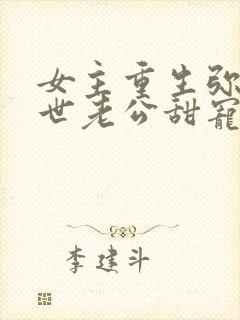 女主重生弥
世老公甜宠
李建斗